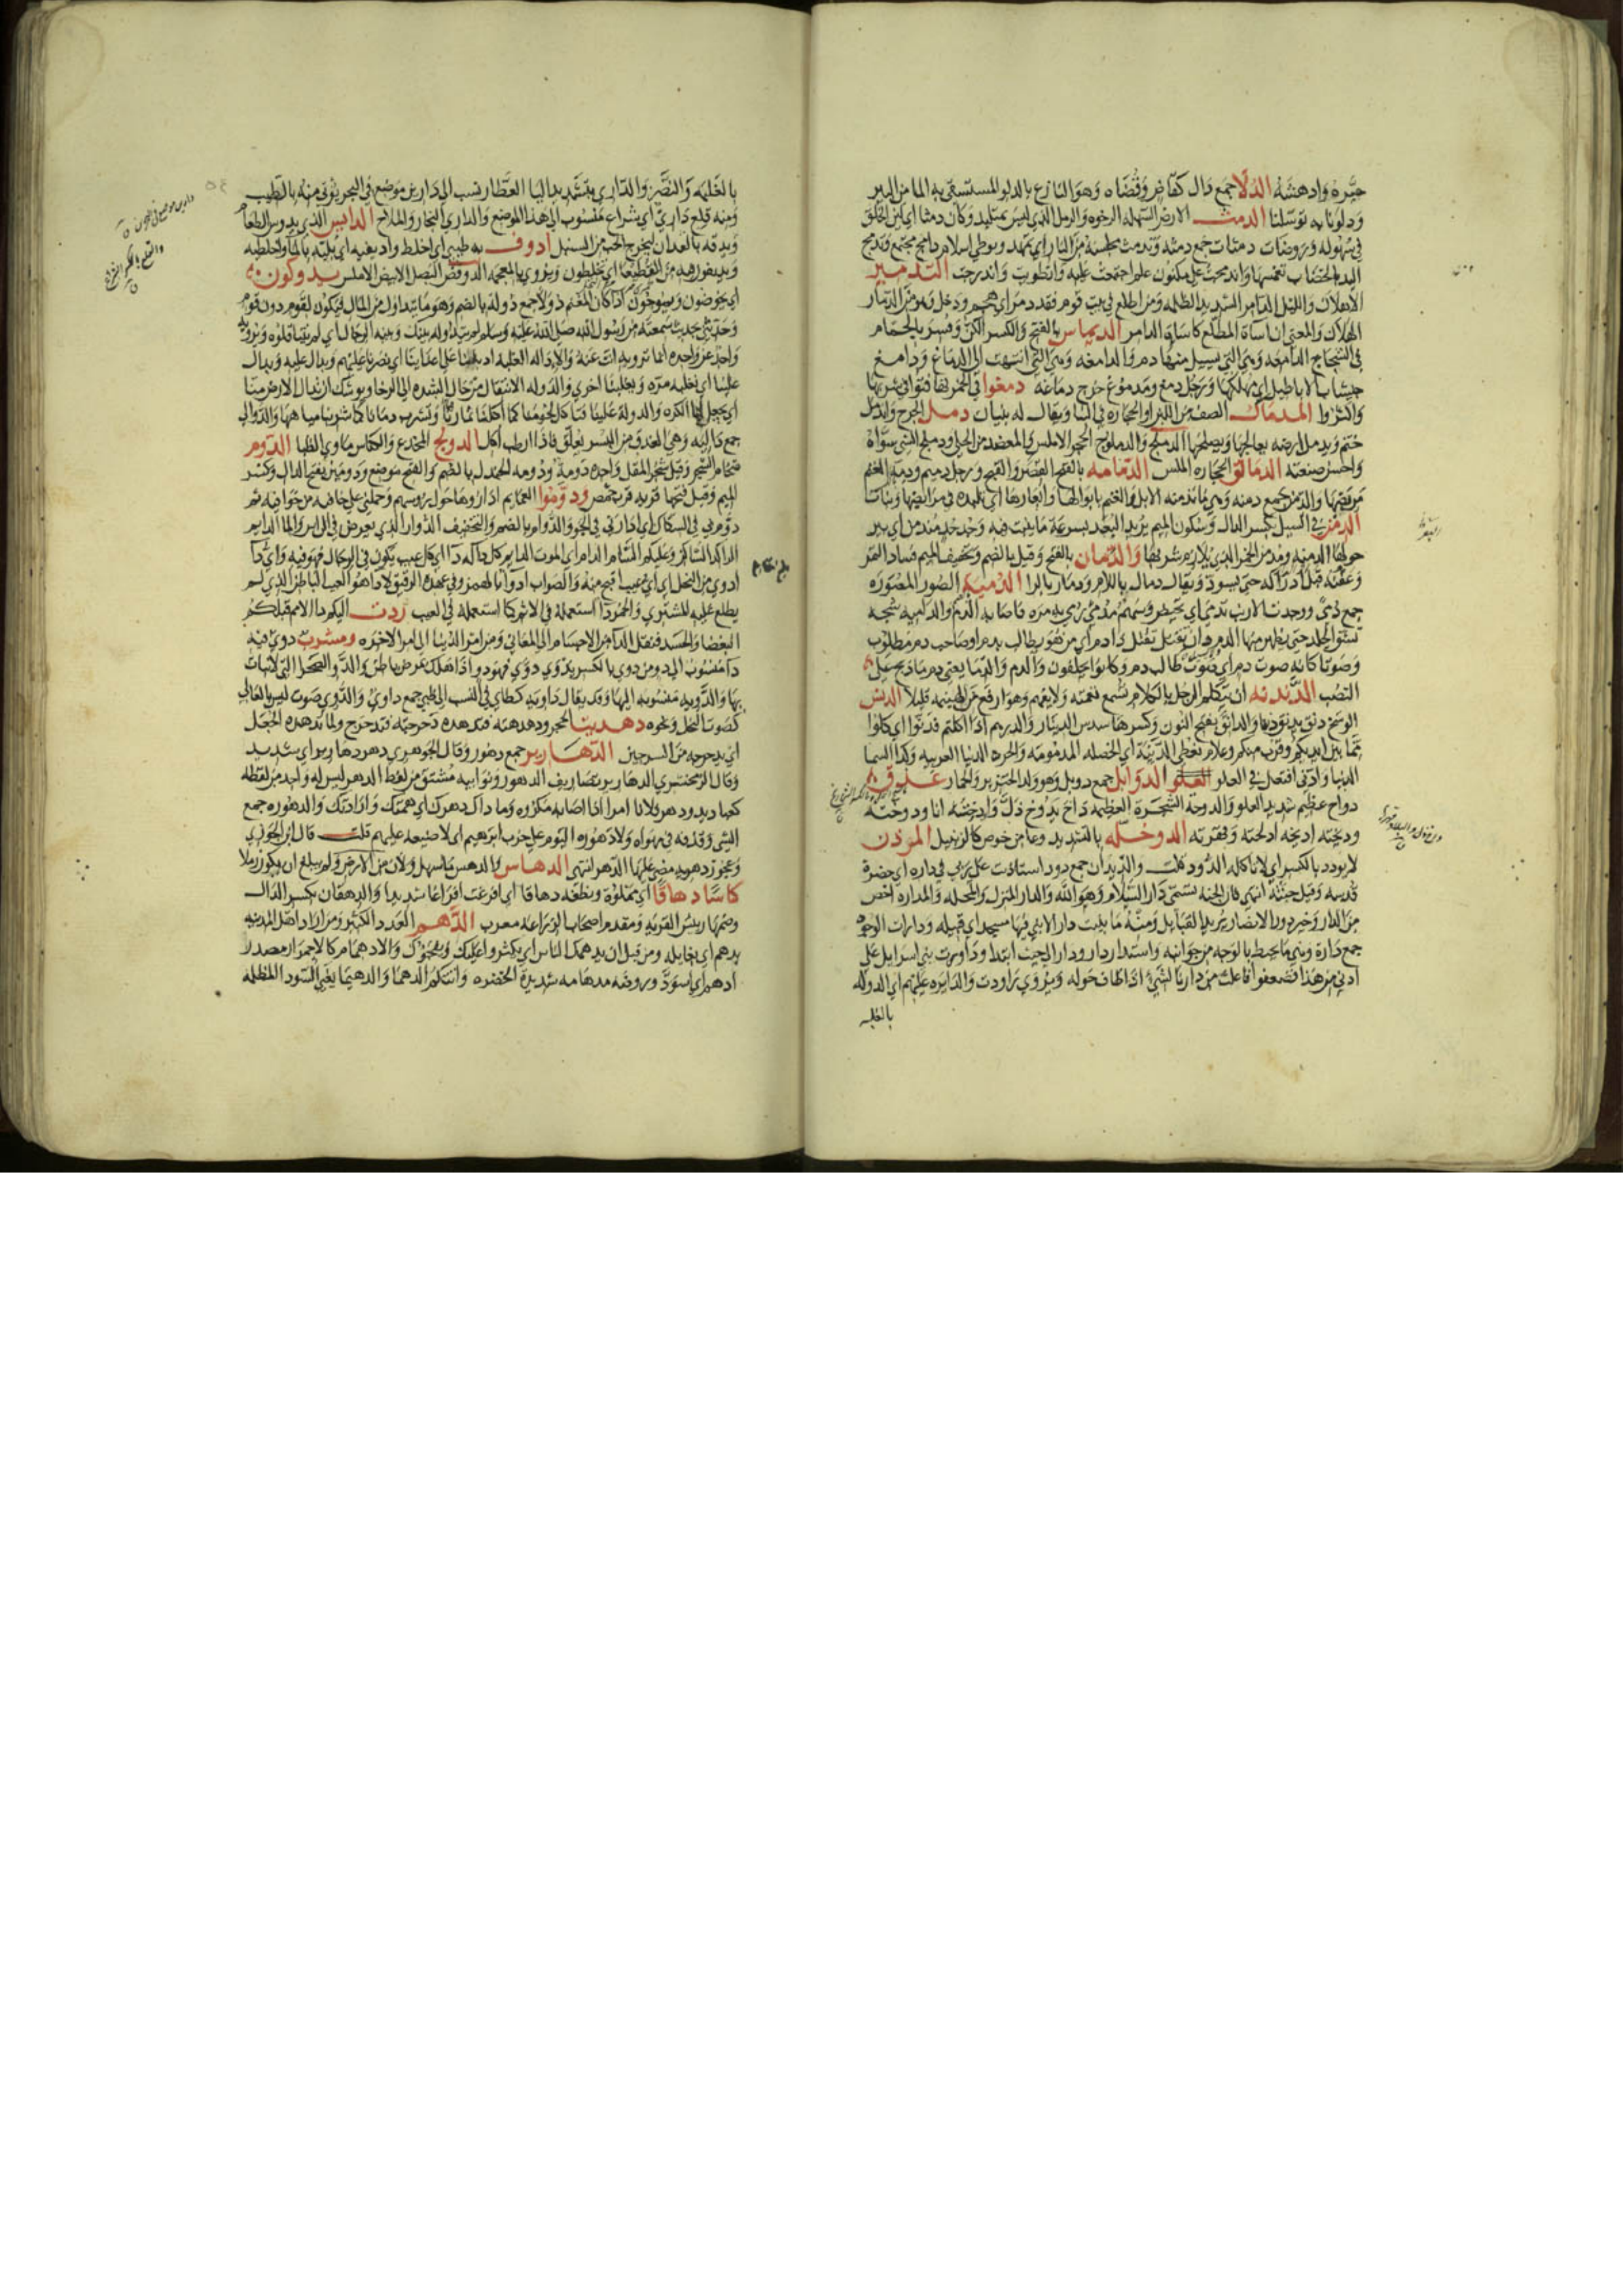 حيره وادهشه الدلا جمع دال كقاض وقضاه وهو النازع بالدلو المستسقي به الما من البير
ودلونا به توسلنا الدمث الارض السهله الرخوه والرمل الذي ليس بمتلبد وكان دمثا اي لين الخلق
في سهوله وروضات دمثات جمع دمثه
البد بالخضاب واندمجت علي مكنون علم اجتمعت عليه وانطويت واندرجت التدمير
الاهلاك والليل الدامس الشديد الظلمه ومن اطلع في بيت قوم فقد دمر اي هجم ودخل وهو من الدمار
الهلاك والمعني ان اساة المطلع كاساة الدامر الديماس بالفتح والكسر الكن وفسر بالحمام
في الشجاج الدامعه وهي التي يسيل منها دم والدامغه وهي التي انتهت الي الدماغ ودامغ
جيشات الاباطيل اي مهلكها ورجل دمغ ومدموغ خرج دماغه دمغوا في الخمر
واكثروا المدماك الصف من اللبن او الحجاره في البنا ويقال له بنيان دمل الجرح واندمل
ختم ويدمل ارضه يعالجها ويصلحها الدملج والدملوج الحجر الاملس والمعضد من الحلي ودملج الشي سواه
واحسن صنعته الدمالق الحجاره الملس الدمامه بالفتح القصر والقبح ورجل دميم ودمة الغنم
مربضها والدمن جمع دمنه وهي ما تدمنه الابل والغنم بابوالها وابعارها اي تلبده في مرابضها ونبات
الدمن في السيل بكسر الدال وسكون الميم يريد البعر لسرعة ما ينبت فيه
حولها الدمنه ومدمن الخمر الذي يلازم شربها والدمان بالفتح وقيل بالضم وتخفيف الميم فساد الثمر
وعفنه قبل ادراكه حتي يسود ويقال دمال باللام ودمار بالرا الدميه الصور المصوره
جمع دمى ووجدت الارنب تدمي اي تحيض وسهم مدمى رمي به مره فاصابه الدم والداميه شجه
تشق الجلد حتي يظهر منها الدم
وصوتا كانه صوت دم اي صوت طالب دم وكانوا يحلفون والدم والدما يعني دم ما ذبح علي
النصب الدندنه ان يتكلم الرجل بالكلام تسمع نغمته ولا يفهم وهو ارفع من الهينمه قليلا الدنس
الوسخ والدانق بفتح النون وكسرها سدس الدينار والدرهم اذا اكلتم فدنوا اي كلوا
مما بين ايديكم وقرب منكم وعلام نعطي الدنية اي الخصله المذمومه والجمره الدنيا القريبه وكذا السما
الدنيا وادنى افتعل من العلو الدوابل جمع دوبل وهو ولد الخنزير والحمار عذوق
دواح عظيم شديد العلو والدوحه الشجره العظيمه داخ يدوخ ذل وادخته انا ودوخته
وديخته اديخه اذللته وقهرته الدوخله بالتشديد وعا من خوص كالزنبيل
لا يودود بالكسر اي لا ياكله الدود قلت والديدان جمع دود استاذنت علي ربي في داره اي حضرة
قدسه وقيل جنته انتهي فان الجنه تسمى دار السلام وهو الله والدار المنزل والمحله والمداره اخص
من الدار وخير دور الانصار يريد القبايل ومنه ما بقيت دار الا بني فيها مسجد اي قبيله ودارات الوجوه
جمع دارة وهي ما يحيط بالوجه من جوانبه واستدار دار ودار الحيث ابتدا وداورت بني اسرايل علي
ادني من هذا فضعفوا فاعلت من دار بالشي اذا طاف حوله ويروي راودت والدايره عليهم اي الدوله
بالغلبه
بالغلبه والنصر والداري بتشديد اليا العطار نسب الي دارين موضع في البحر يؤتي منه بالطيب
ومنه قلع داري اي شراع منسوب الي هذا الموضع والداري البحار والملاح الدايس الذي يدوس الطعام
ويدقه بالفدان ليخرج الحب من السنبل ادوف به طيبي اي اخلط واديفيه اي بليه بالما واخلطيه
ويديفون فيه من القطيعا اي يخلطون ويروي بالمعجمه الدوقص البصل الابيض الاملس يدوكون
اي يخوضون ويموجون اذا كان المغنم دولا جمع دوله بالضم وهو ما يتداول من المال فيكون لقوم دون قوم
وحدثني بحديث سمعته من رسول الله صلي الله عليه وسلم
والاداله الغلبه اديلنا علي اعداينا اي نصرنا عليهم ويدال عليه ويدال
علينا اي نغلبه مره ويغلبنا اخري والدوله الانتقال من حال الشده الي الرخا ويوشك ان تدال الارض منا
اي يجعل لها الكره والدوله علينا فتاكل لحومنا كما اكلنا ثمارها وتشرب دمانا كما شربنا مياهها والدوالي
جمع داليه وهي العذق من البسر يعلق فاذا ارطب اكل الدولج المخدع والكناس ماوي الظبا الدوم
ضخام الشجر وقيل شجر المقل واحده دومة ودومه الجندل بالضم والفتح موضع ودومين بفتح الدال وكسر
الميم وقيل فتحها قريه قرب حمص ودوموا العمايم اداروها حول رووسهم وحملني علي خافيه من خوافيه ثم
دوم بي في السكاك اي ادارني في الجو والدوام بالضم والتخفيف الدوار الذي يعرض في الراس والما الدايم
الراكد الساكن وعليكم السام الدام اي الموت الدايم كل دا له دا اي كل عيب يكون في الرجال فهو فيه واي دا
ادوي من البخل اي اي عيب اقبح منه والصواب ادوا بالهمز وفي عهدة الرقيق لا دا هو العيب الباطن الذي لم
يطلع عليه المشتري والخمر دا استعمله في الاثم كما استعمله في العيب ردت اليكم دا الامم قبلكم
البغضا والحسد فنقل الدا من الاجسام الي المعاني ومن امر الدنيا الي امر الاخره ومشرب دوي فيه
دا منسوب الي دو من دوي بالكسر يدوي دوي فهو دو اذا هلك بمرض باطن والدو الصحرا التي لا نبات
بها والدويه منسوبه اليها وقد يقال داويه كطاي في النسب الي طي جمع داوي والدوي صوت ليس بالعالي
كصوت النحل ونحوه دهديت الحجر ودهدهته فتدهده دحرجته فتدحرج ولما يدهده الجعل
اي يدحرجه من السرجين الدهارير جمع دهور وقال الجوهري دهر دهارير اي شديد
وقال الزمخشري الدهارير تصاريف الدهور ونوايبه مشتق من لفظ الدهر ليس له واحد من لفظه
كعباديد ودهر فلانا امر اذا اصابه مكروه وما ذاك دهرك اي همتك وارادتك والدهوره جمع
الشي وقذفه في مهواه ولا دهوره اليوم علي حزب ابرهيم اي لا ضيعه عليهم قلت قال ابن الجوزي
وعجوز دهريه مضي عليها الدهر انتهي الدهاس والدهس ما سهل ولان من الارض ولم يبلغ ان يكون رملا
كاسا دهاقا اي مملوة ونطفه دهاقا اي افرغت افراغا شديدا والدهقان بكسر الدال
وضمها رييس القريه ومقدم اصحاب الزراعه معرب الدهم العدد الكثير ومن اراد اهل المدينه
بدهم اي بغايله ومن قبل ان يدهمك الناس اي يكثروا عليك ويفجؤك والادهمام كالاحمرار مصدر
ادهم اي اسود وروضه مدهامه شديدة الخضره واتتكم الدهما والدهيما يعني السود المظلمه